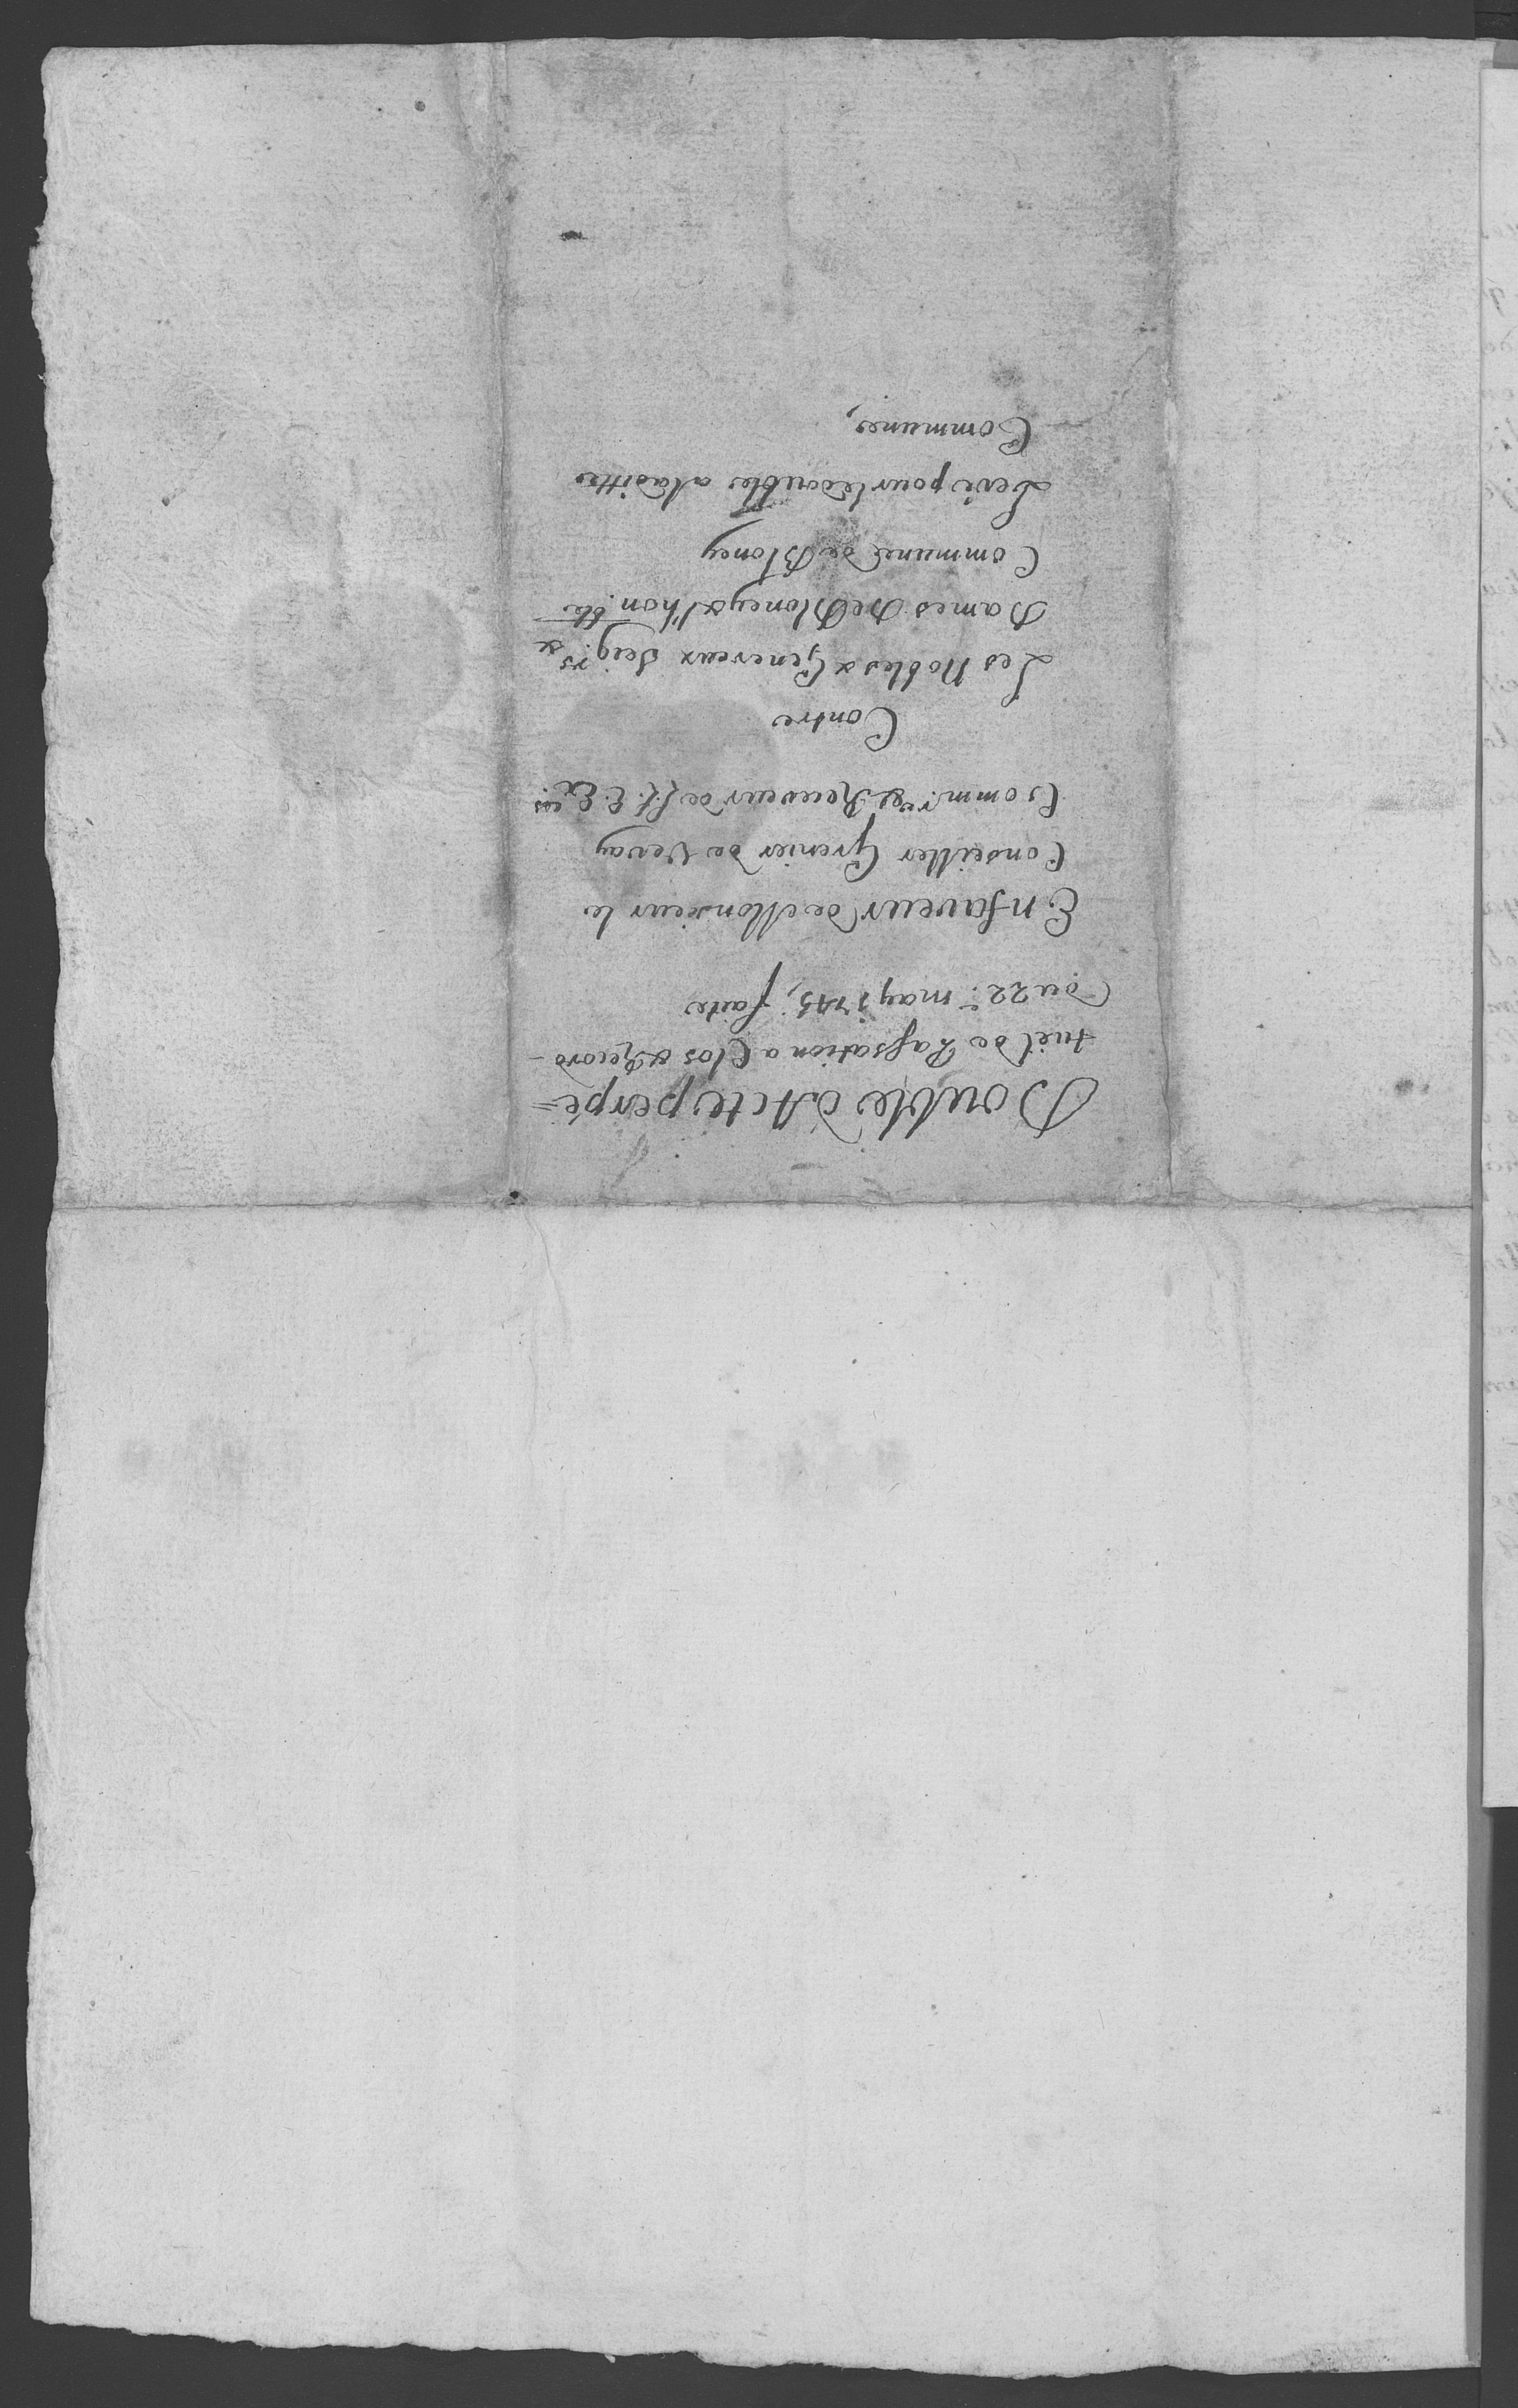 Double d'Acte perpé=
tuel de Passation a Clos & Record
du 22.e may 1745, faite
En faveur de Monsieur le
Conseiller Grenier de Vevay
Comm.re & Receveur de LL. EE.ces
Contre
Les Nobles & Genereux Seig.rs &
Dames De Bloney & l'hon.ble
Commune de Bloney
Levé pour le double a laditte
Commune,